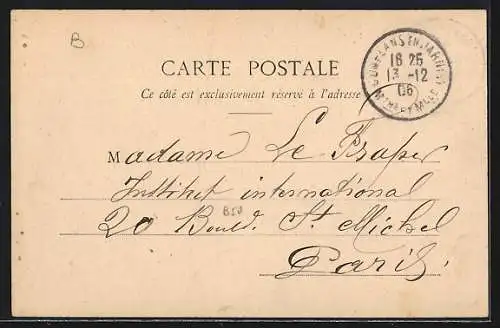 B
CONFLANS EN JARNISY
16 25
13 -12
06
CARTE POSTALE
Ce côté est exclusivement réservé à l'adresse
Madame Le
Institut international
20 Bould. St Michel
Paris